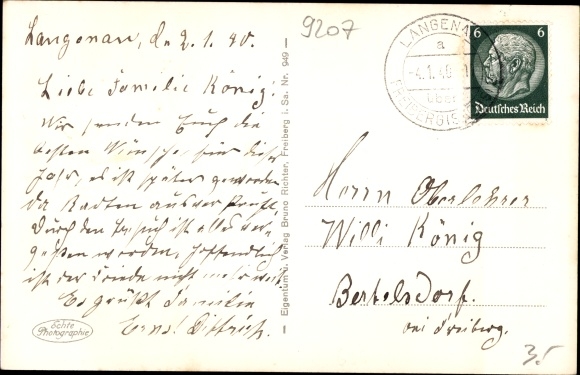 Langenau, d. 2.1.40.
Liebe Familie König!
Wir senden Euch die
besten Wünsche für dieses
Jahr, es ist später geworden
die Karten ausverkauft,
durch den Besuch ist alles ver-
gessen worden, hoffentlich
ist der Friede nicht mehr weit.
Es grüßt Familie
Ernst Dittrich.
Echte
Photographie
— Eigentum u. Verlag Bruno Richter, Freiberg i. Sa. Nr. 949 —
9207
LANGENAU
a
-4.1.40
über
FREIBERG (SA
6 6
Deutsches Reich
Herrn Oberlehrer
Willi König
Bertelsdorf.
bei Freiberg.
3.-